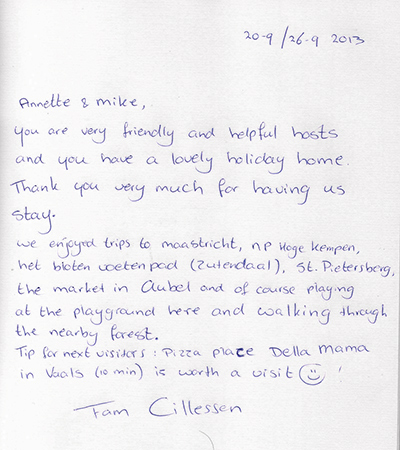 20-9 / 26-9 2013
Annette & mike,
you are very friendly and helpful hosts
and you have a lovely holiday home.
Thank you very much for having us
stay.
we enjoyed trips to maastricht, NP Hoge Kempen,
het bloten voetenpad (Zutendaal), St. Pietersberg,
the market in Aubel and of course playing
at the playground here and walking through
the nearby forest.
Tip for next visitors : Pizza place Della mama
in Vaals (10 min) is worth a visit ☺ !
Fam Cillessen